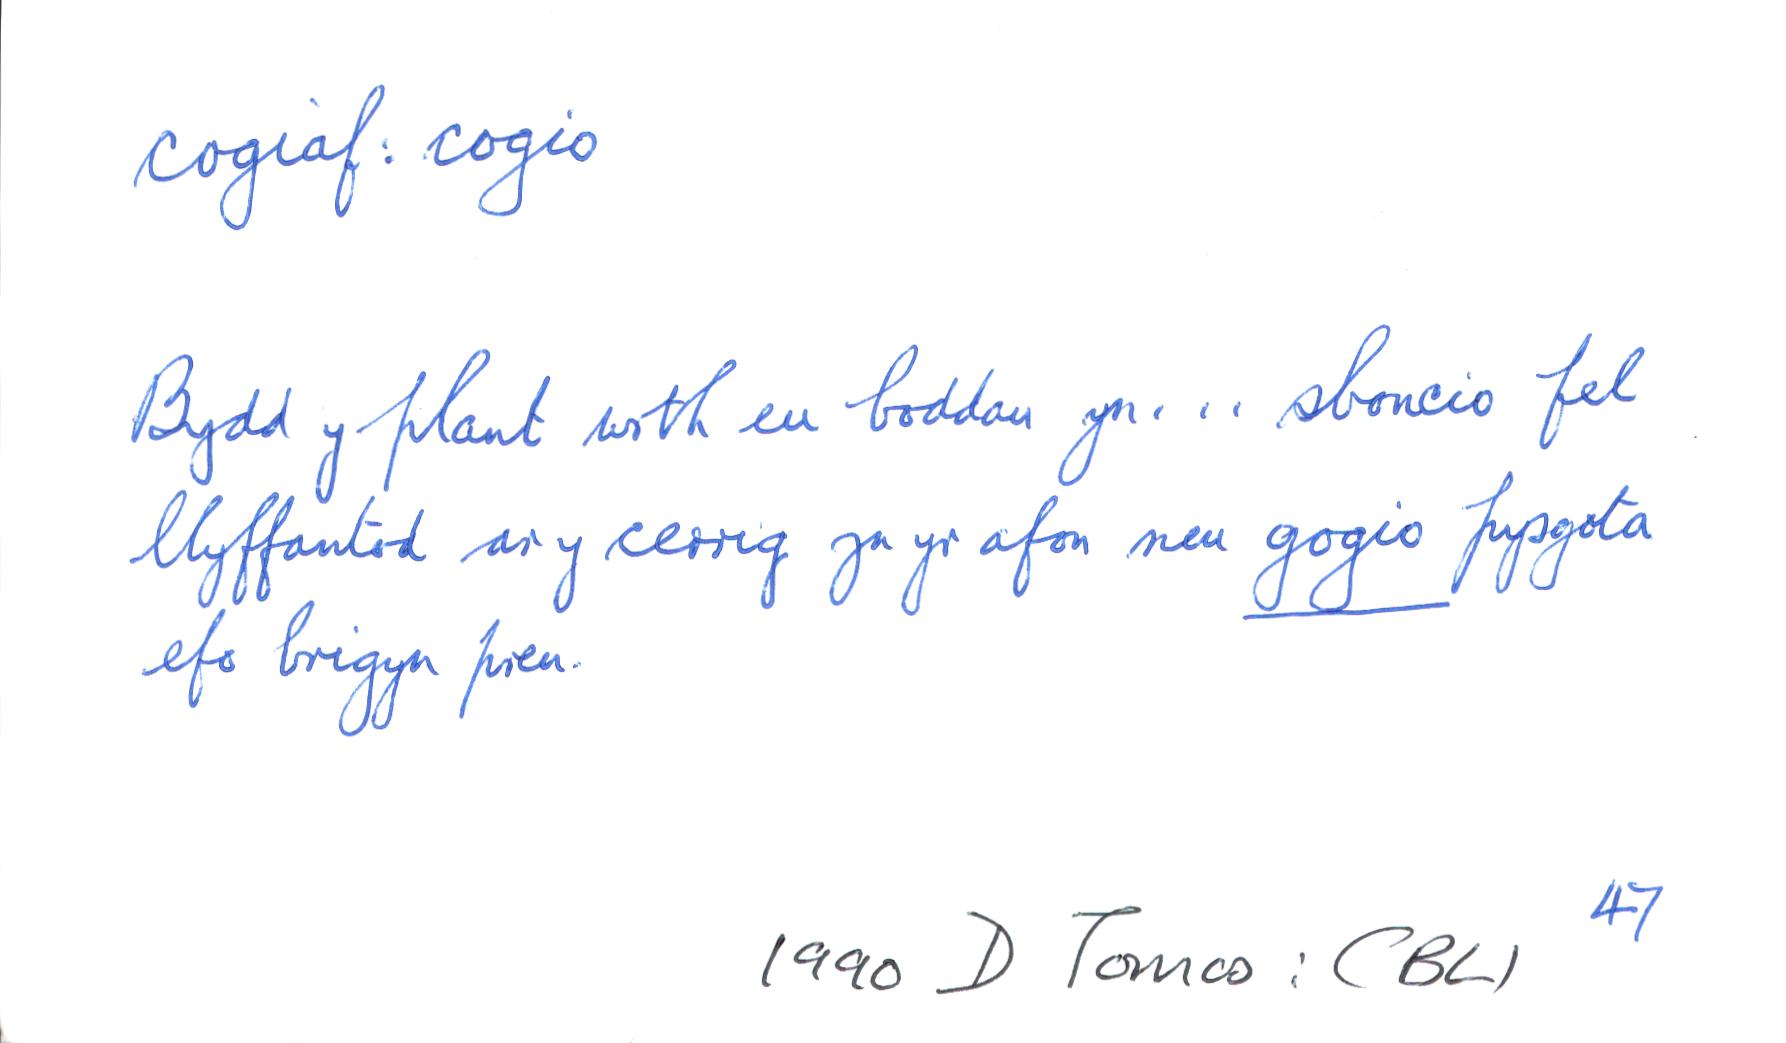 cogiaf: cogio
Bydd y plant wrth eu boddau yn... sboncio fel
llyffantod ar y cerrig yn yr afon neu gogio pysgota
efo brigyn pren.
47
1990 D Tomos : CBLl